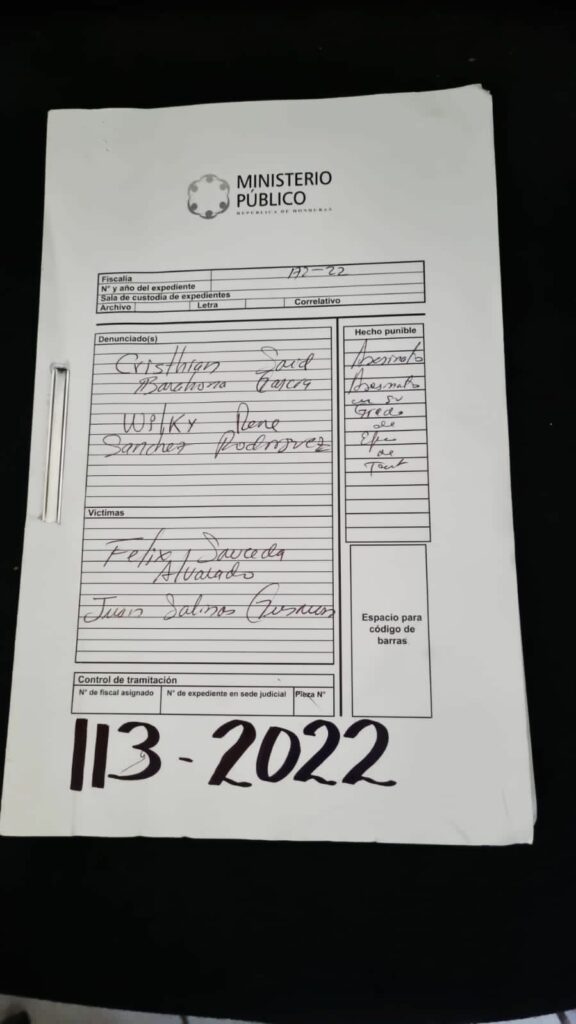 MINISTERIO
PÚBLICO
REPUBLICA DE HONDURAS
Fiscalía
N° y año del expediente
Sala de custodia de expedientes
Archivo Letra Correlativo
Denunciado(s)
Cristhian Said
Barahona Garcia
Wilky Rene
Sanchez Rodriguez
Víctimas
Felix Sauceda
Alvarado
Juan Salinas
Hecho punible
Asesinato
Asesinato
en su
Grado
de
de
Espacio para
código de
barras
Control de tramitación
N° de fiscal asignado N° de expediente en sede judicial Pieza N°
113-2022